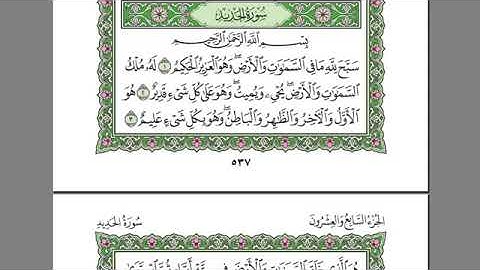 سُورَةُ الحَدِيدِ
بِسْمِ اللَّهِ الرَّحْمَٰنِ الرَّحِيمِ
سَبَّحَ لِلَّهِ مَا فِي السَّمَاوَاتِ وَالْأَرْضِ ۖ وَهُوَ الْعَزِيزُ الْحَكِيمُ ١ لَهُ مُلْكُ
السَّمَاوَاتِ وَالْأَرْضِ ۖ يُحْيِي وَيُمِيتُ ۖ وَهُوَ عَلَىٰ كُلِّ شَيْءٍ قَدِيرٌ ٢ هُوَ
الْأَوَّلُ وَالْآخِرُ وَالظَّاهِرُ وَالْبَاطِنُ ۖ وَهُوَ بِكُلِّ شَيْءٍ عَلِيمٌ ٣
٥٣٧
الجُزءُ السَّابِعُ وَالعِشْرُونَ
سُورَةُ الحَدِيدِ
هُوَ الَّذِي خَلَقَ السَّمَاوَاتِ وَالْأَرْضَ فِي سِتَّةِ أَيَّامٍ ثُمَّ اسْتَوَىٰ